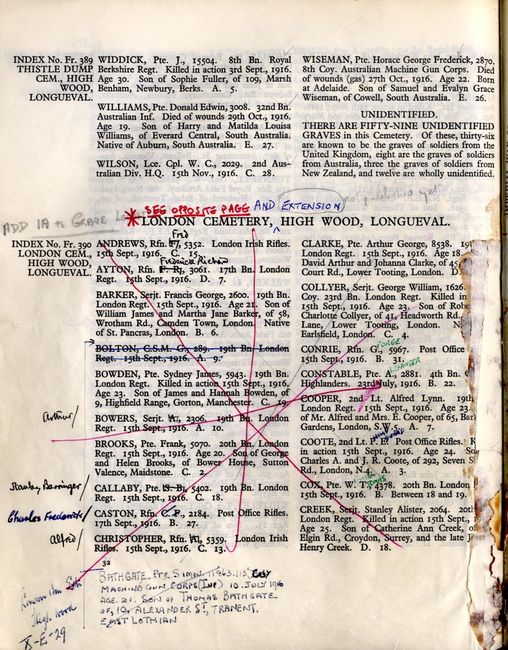 INDEX No. Fr. 389
THISTLE DUMP
CEM., HIGH
WOOD,
LONGUEVAL.
WIDDICK, Pte. J., 15504. 8th Bn. Royal
Berkshire Regt. Killed in action 3rd Sept., 1916.
Age 30. Son of Sophie Fuller, of 109, Marsh
Benham, Newbury, Berks. A. 5.
WILLIAMS, Pte. Donald Edwin, 3008. 32nd Bn.
Australian Inf. Died of wounds 29th Oct., 1916.
Age 19. Son of Harry and Matilda Louisa
Williams, of Everard Central, South Australia.
Native of Auburn, South Australia. E. 27.
WILSON, Lce. Cpl. W. C., 2029. 2nd Aus-
tralian Div. H.Q. 15th Nov., 1916. C. 28.
WISEMAN, Pte. Horace George Frederick, 2870.
8th Coy. Australian Machine Gun Corps. Died
of wounds (gas) 27th Oct., 1916. Age 22. Born
at Adelaide. Son of Samuel and Evalyn Grace
Wiseman, of Cowell, South Australia. E. 26.
UNIDENTIFIED.
THERE ARE FIFTY-NINE UNIDENTIFIED
GRAVES in this Cemetery. Of these, thirty-six
are known to be the graves of soldiers from the
United Kingdom, eight are the graves of soldiers
from Australia, three the graves of soldiers from
New Zealand, and twelve are wholly unidentified.
not published yet
SEE OPPOSITE PAGE AND EXTENSION
ADD 1A to Grave
*LONDON CEMETERY, HIGH WOOD, LONGUEVAL.
INDEX No. Fr. 390
LONDON CEM.,
HIGH WOOD,
LONGUEVAL.
Fred
ANDREWS, Rfn. F., 5352. London Irish Rifles.
15th Sept., 1916. C. 15.
Frederick Richard
AYTON, Rfn. F. R., 3061. 17th Bn. London
Regt. 15th Sept., 1916. D. 7.
BARKER, Serjt. Francis George, 2600. 19th Bn.
London Regt. 15th Sept., 1916. Age 21. Son of
William James and Martha Jane Barker, of 58,
Wrotham Rd., Camden Town, London. Native
of St. Pancras, London. B. 6.
BOLTON, C.S.M. G., 289. 19th Bn. London
Regt. 15th Sept., 1916. A. 9.
BOWDEN, Pte. Sydney James, 5943. 19th Bn.
London Regt. Killed in action 15th Sept., 1916.
Age 23. Son of James and Hannah Bowden, of
9, Highfield Range, Gorton, Manchester. C. 19.
Arthur/
BOWERS, Serjt. A., 2306. 19th Bn. London
Regt. 15th Sept., 1916. A. 10.
BROOKS, Pte. Frank, 5070. 20th Bn. London
Regt. 15th Sept., 1916. Age 20. Son of George
and Helen Brooks, of Bower House, Sutton
Valence, Maidstone. C. 2.
Stanley Berringer/
CALLABY, Pte. S. B., 5402. 19th Bn. London
Regt. 15th Sept., 1916. C. 18.
Charles Frederick/
CASTON, Rfn. C. F., 2184. Post Office Rifles.
17th Sept., 1916. B. 27.
Alfred/
CHRISTOPHER, Rfn. A., 5359. London Irish
Rifles. 15th Sept., 1916. C. 13.
CLARKE, Pte. Arthur George, 8538. 19t
London Regt. 15th Sept., 1916. Age 18.
David Arthur and Johanna Clarke, of
Court Rd., Lower Tooting, London. D.
COLLYER, Serjt. George William, 1626
Coy. 23rd Bn. London Regt. Killed in
15th Sept., 1916. Age 23. Son of Rob
Charlotte Collyer, of 41, Headworth Rd.,
Lane, Lower Tooting, London. N
Earlsfield, London. C. 4.
GEORGE
CONRIE, Rfn. G., 5967. Post Office
15th Sept., 1916. B. 31.
ALEXANDER
CONSTABLE, Pte. A., 2881. 4th Bn. G
Highlanders. July, 1916. B. 22.
COOPER, 2nd Lt. Alfred Lynn. 19th
London Regt. 15th Sept., 1916. Age 23.
of Mr. Alfred and Mrs. E. Cooper, of 65, Bar
Gardens, London, S.W.5. A. 7.
COOTE, 2nd Lt. P. F. Post Office Rifles. K
in action 15th Sept., 1916. Age 24. So
Charles A. and J. R. Coote, of 292, Seven S
Rd., London, N.4. A. 3.
COX, Pte. W. T., 4378. 20th Bn. London
Regt. 15th Sept., 1916. B. Between 18 and 19.
CREEK, Serjt. Stanley Alister, 2064. 20th
London Regt. Killed in action 15th Sept.,
Age 25. Son of Catherine Ann Creek, of
Elgin Rd., Croydon, Surrey, and the late J
Henry Creek. D. 18.
32
BATHGATE. Pte SIMON 11963. 113 Coy
MACHINE GUN CORPS (INF) 10. JULY 1916
AGE. 21. SON OF THOMAS BATHGATE
OF, 19, ALEXANDER ST, TRANENT,
EAST LOTHIAN
London Cem Extn
High Wood
8-E-29